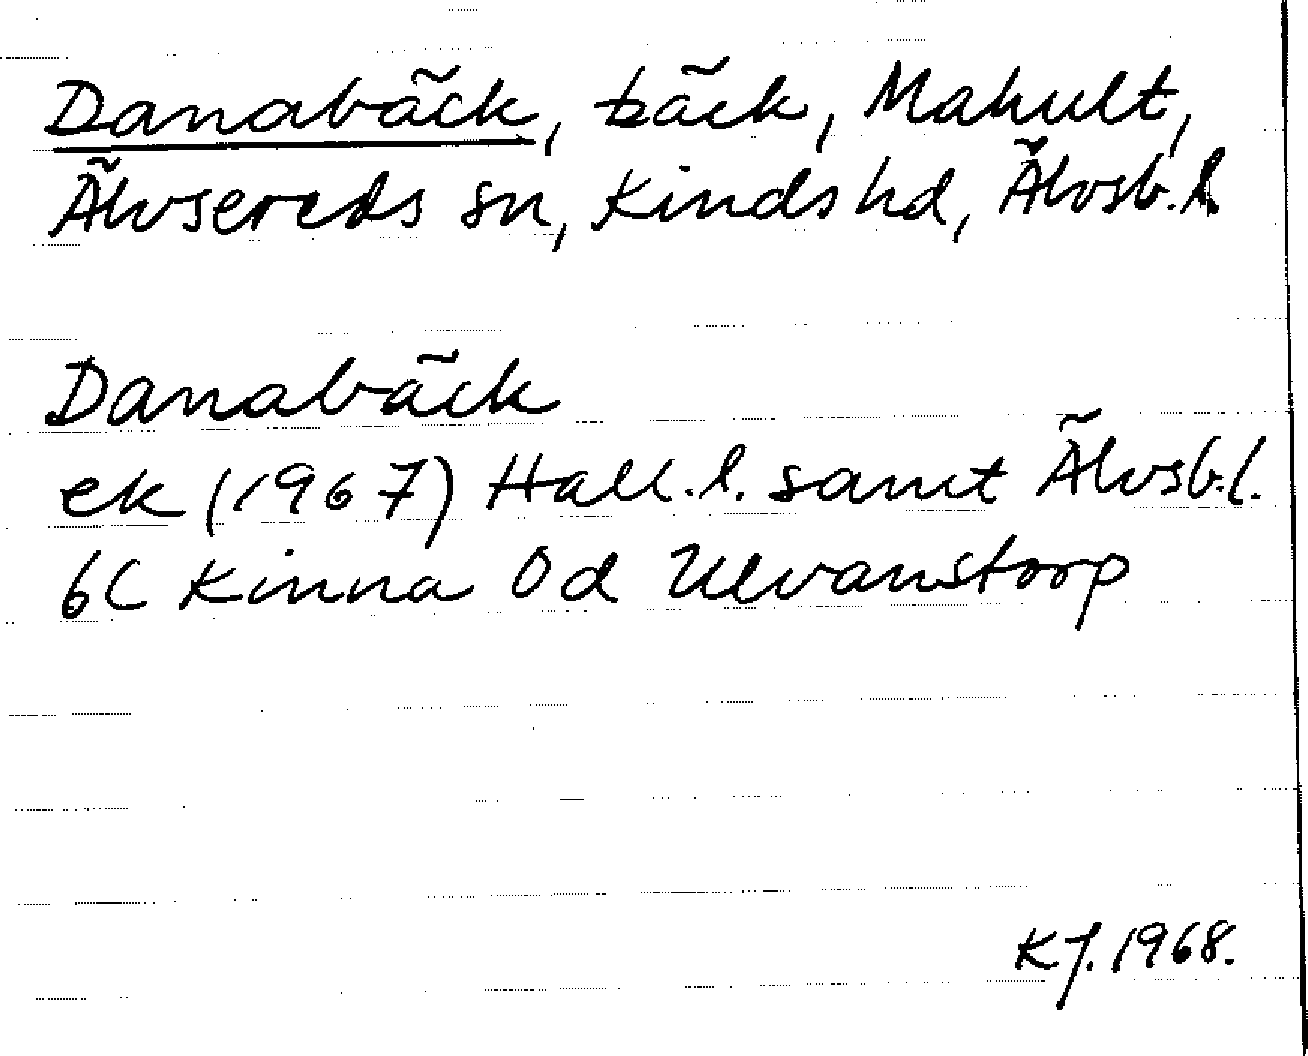 Danabäck, bäck, Mahult,
Älvsereds sn, Kinds hd, Älvsb. l.
Danabäck
ek (1967) Hall. l. samt Älvsb. l.
6C Kinna 0d Ulvanstorp
KJ. 1968.